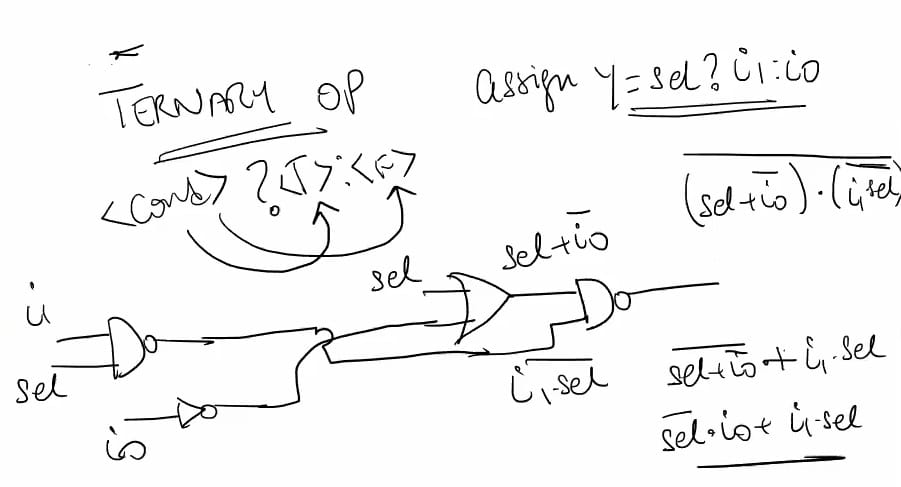 *
TERNARY OP
assign y = sel ? i1 : i0
<cond> ? <T> : <F>
(sel + i̅0) · (i1 sel)
sel
sel + i̅0
i1
sel
i0
i1·sel
sel + i̅0 + i1·sel
s̅e̅l̅·i0 + i1·sel